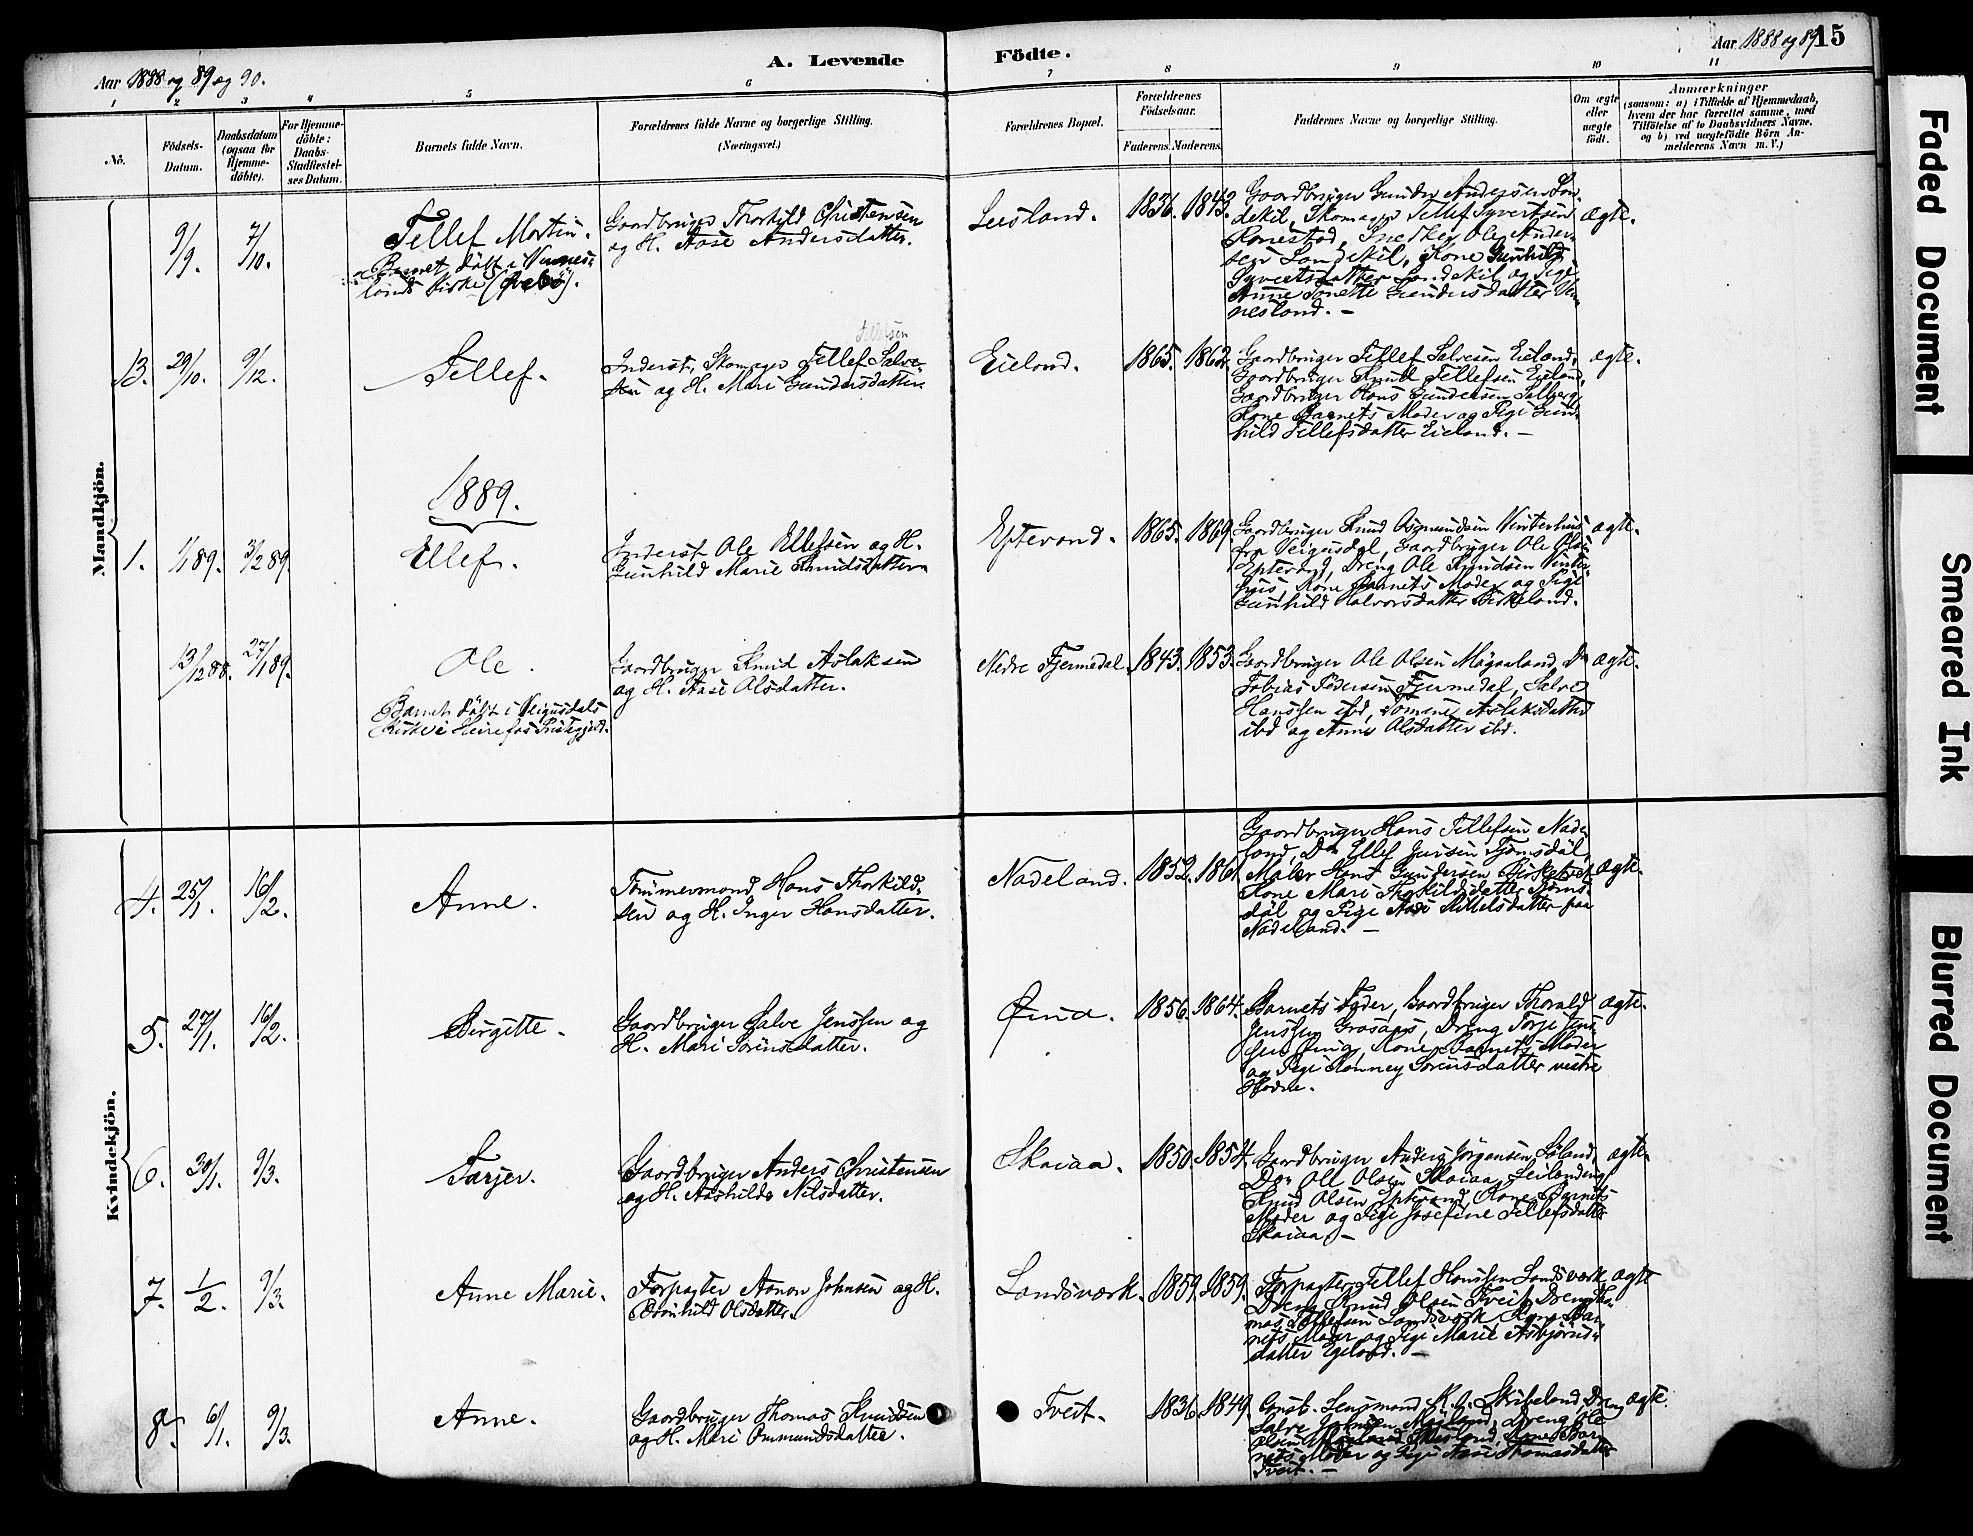 Aar 1888 og 89 og 90.
A. Levende
Födte.
Aar 1888 og 89
15
1 2 3 4 5 6 7 8 9 10 11
No.
Födsels-
Datum.
Daabsdatum
(ogsaa for
Hjemme-
döbte).
For Hjemme-
döbte:
Daabs-
Stadfæstel-
ses Datum.
Barnets fulde Navn.
Forældrenes fulde Navne og borgerlige Stilling.
(Næringsvei.)
Forældrenes Bopæl.
Forældrenes
Födselsaar.
Faderens. Moderens.
Faddernes Navne og borgerlige Stilling.
Om ægte
eller
uægte
födt.
Anmærkninger
(saasom: a) i Tilfælde af Hjemmedaab,
hvem der har forrettet samme, med
Tilföielse af to Daabsvidners Navne,
og b) ved uægtefödte Börn An-
melderens Navn m. V.)
Mandkjön.
9/9. 7/10.
Tellef Martin.
Barnet døbt i Vennes-
lands Kirke (Øvebø).
Gaardbruger Thorkild Christensen
og H. Aase Andersdatter.
Leisland. 1836. 1843.
Gaardbruger Gunder Andersen Lan-
dekil, Skomager Tellef Syvertsen
Snedker Ole Ander-
sen Landekil, Kone Gunhild
Syvertsdatter Landekil og Pige
Anne Tonette Gundersdatter Ven-
nesland. -
ægte.
13. 29/10. 9/12.
Tellef.
Tellefsen
Inderst, Skomager Tellef Salve-
sen og H. Mari Gundersdatter.
Eieland. 1865. 1862.
Gaardbruger Tellef Salvesen Eieland,
Gaardbruger Knud Tellefsen Eieland,
Gaardbruger Hans Gundersen Solberg,
Kone Barnets Moder og Pige Gun-
hild Tellefsdatter Eieland. -
ægte.
1889.
1. 1/1 89. 3/2 89.
Ellef.
Inderst Ole Ellefsen og H.
Gunhild Marie Knudsdatter.
Eptevand. 1865. 1869.
Gaardbruger Knud Osmundsen Vinterhus
fra Veigusdal, Gaardbruger Ole Olsen
Eptevand, Dreng Ole Knudsen Vinter-
hus, Kone Barnets Moder og Pige
Gunhild Halvorsdatter Birkeland.
ægte.
13/12 88. 27/1 89.
Ole.
Barnet døbt i Veigusdals
Kirke i Herefos Præstegjeld.
Gaardbruger Knud Aslaksen
og H. Aase Olsdatter.
Nedre Fjermedal. 1843. 1853.
Gaardbruger Ole Olsen Mögaaland, Do
Tobias Pedersen Fjermedal, Salve
Hanssen ibd, Tomine Aslaksdatter
ibd og Anne Olsdatter ibd.
ægte.
Kvindekjön.
4. 25/1. 16/2.
Anne.
Tømmermand Hans Thorkild-
sen og H. Inger Hansdatter.
Nadeland. 1852. 1861.
Gaardbruger Hans Tellefsen Nade-
land, Do Ellef Jensen Tjomsdal,
Maler Hans Gundersen Birketveit,
Kone Mari Thorkildsdatter Tjoms-
dal og Pige Aase Kittelsdatter paa
Nadeland. -
ægte.
5. 27/1. 16/2.
Birgitte.
Gaardbruger Salve Jenssen og
H. Mari Sørensdatter.
1856. 1864.
Barnets Fader, Gaardbruger Thorald
Jenssen Grosaas, Dreng Torje Jens-
sen Kone Barnets Moder
og Pige Ronney Sørensdatter vestre
Hodne.
ægte.
6. 30/1. 9/3.
Tarjer.
Gaardbruger Anders Christensen
og H. Aashilde Nilsdatter.
Skaiaa. 1850. 1854.
Gaardbruger Anders Jørgensen
Do Ole Olsen Skaiaa, Leilænding
Knud Olsen Eptevand, Kone Barnets
Moder og Pige Josefine Tellefsdatter
Skaiaa. -
ægte.
7. 1/2. 9/3.
Anne Marie.
Forpagter Aanon Johnsen og H.
Brønhild Olsdatter.
Landsværk. 1859. 1859.
Forpagter Tellef Hanssen Landsværk,
Dreng Knud Olsen Tveit, Dreng Tho-
mas Tellefsen Landsværk, Kone Bar-
nets Moder og Pige Marie Asbjørns-
datter Egeland. -
ægte
8. 6/1. 9/3.
Anne.
Gaardbruger Thomas Knudsen
og H. Mari Ommundsdatter.
Tveit. 1836. 1849.
Const. Lensmand K. O. Skripeland, Dreng
Salve Johnsen Dreng Ole
Olsen Kone Bar-
nets Moder og Pige Aase Thomasdatter
Tveit. -
ægte.
Faded Document
Smeared Ink
Blurred Document